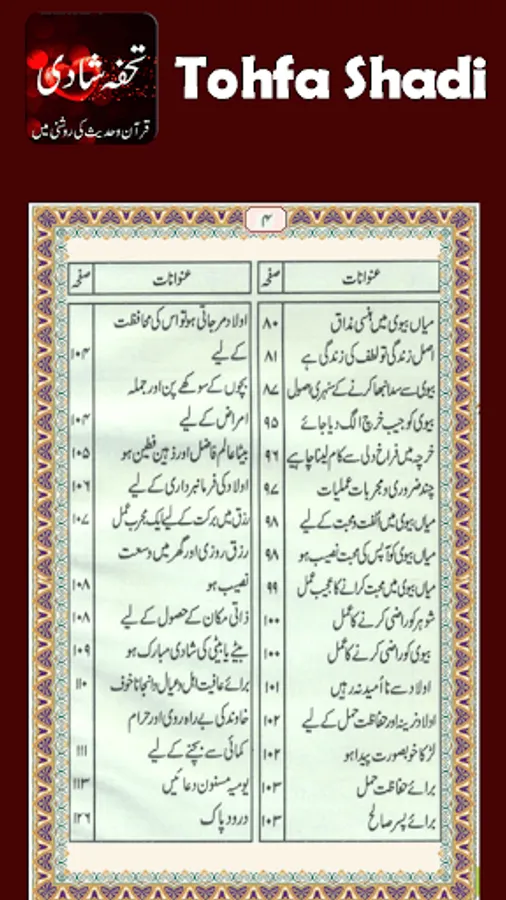 تحفہ شادی
قرآن و حدیث کی روشنی میں
Tohfa Shadi
۴
عنوانات صفحہ
میاں بیوی میں ہنسی مذاق ۸۰
اصل زندگی تو لطف کی زندگی ہے ۸۱
بیوی سے سدا نبھا کرنے کے سنہری اصول ۸۷
بیوی کو جیب خرچ الگ دیا جائے ۹۵
خرچہ میں فراخ دلی سے کام لینا چاہیے ۹۶
چند ضروری و مجربات عملیات ۹۷
میاں بیوی میں اُلفت و محبت کے لیے ۹۸
میاں بیوی کو آپس کی محبت نصیب ہو ۹۸
میاں بیوی میں محبت کرانے کا عجیب عمل ۹۹
شوہر کو راضی کرنے کا عمل ۱۰۰
بیوی کو راضی کرنے کا عمل ۱۰۰
اولاد سے نا اُمید نہ رہیں ۱۰۱
اولاد نرینہ اور حفاظت حمل کے لیے ۱۰۲
لڑکا خوبصورت پیدا ہو ۱۰۲
برائے حفاظت حمل ۱۰۳
برائے پسر صالح ۱۰۳
عنوانات صفحہ
اولاد مر جاتی ہو تو اس کی محافظت
کے لیے ۱۰۴
بچوں کے سوکھے پن اور جملہ
امراض کے لیے ۱۰۴
بیٹا عالم فاضل اور ذہین فطین ہو ۱۰۵
اولاد کی فرمانبرداری کے لیے ۱۰۶
رزق میں برکت کے لیے ایک مجرب عمل ۱۰۷
رزق روزی اور گھر میں وسعت
نصیب ہو ۱۰۸
ذاتی مکان کے حصول کے لیے ۱۰۸
بیٹے یا بیٹی کی شادی مبارک ہو ۱۰۹
برائے عافیت اہل و عیال و انجانا خوف ۱۱۰
خاوند کی بے راہ روی اور حرام
کمائی سے بچنے کے لیے ۱۱۱
یومیہ مسنون دعائیں ۱۱۳
درود پاک ۱۲۶